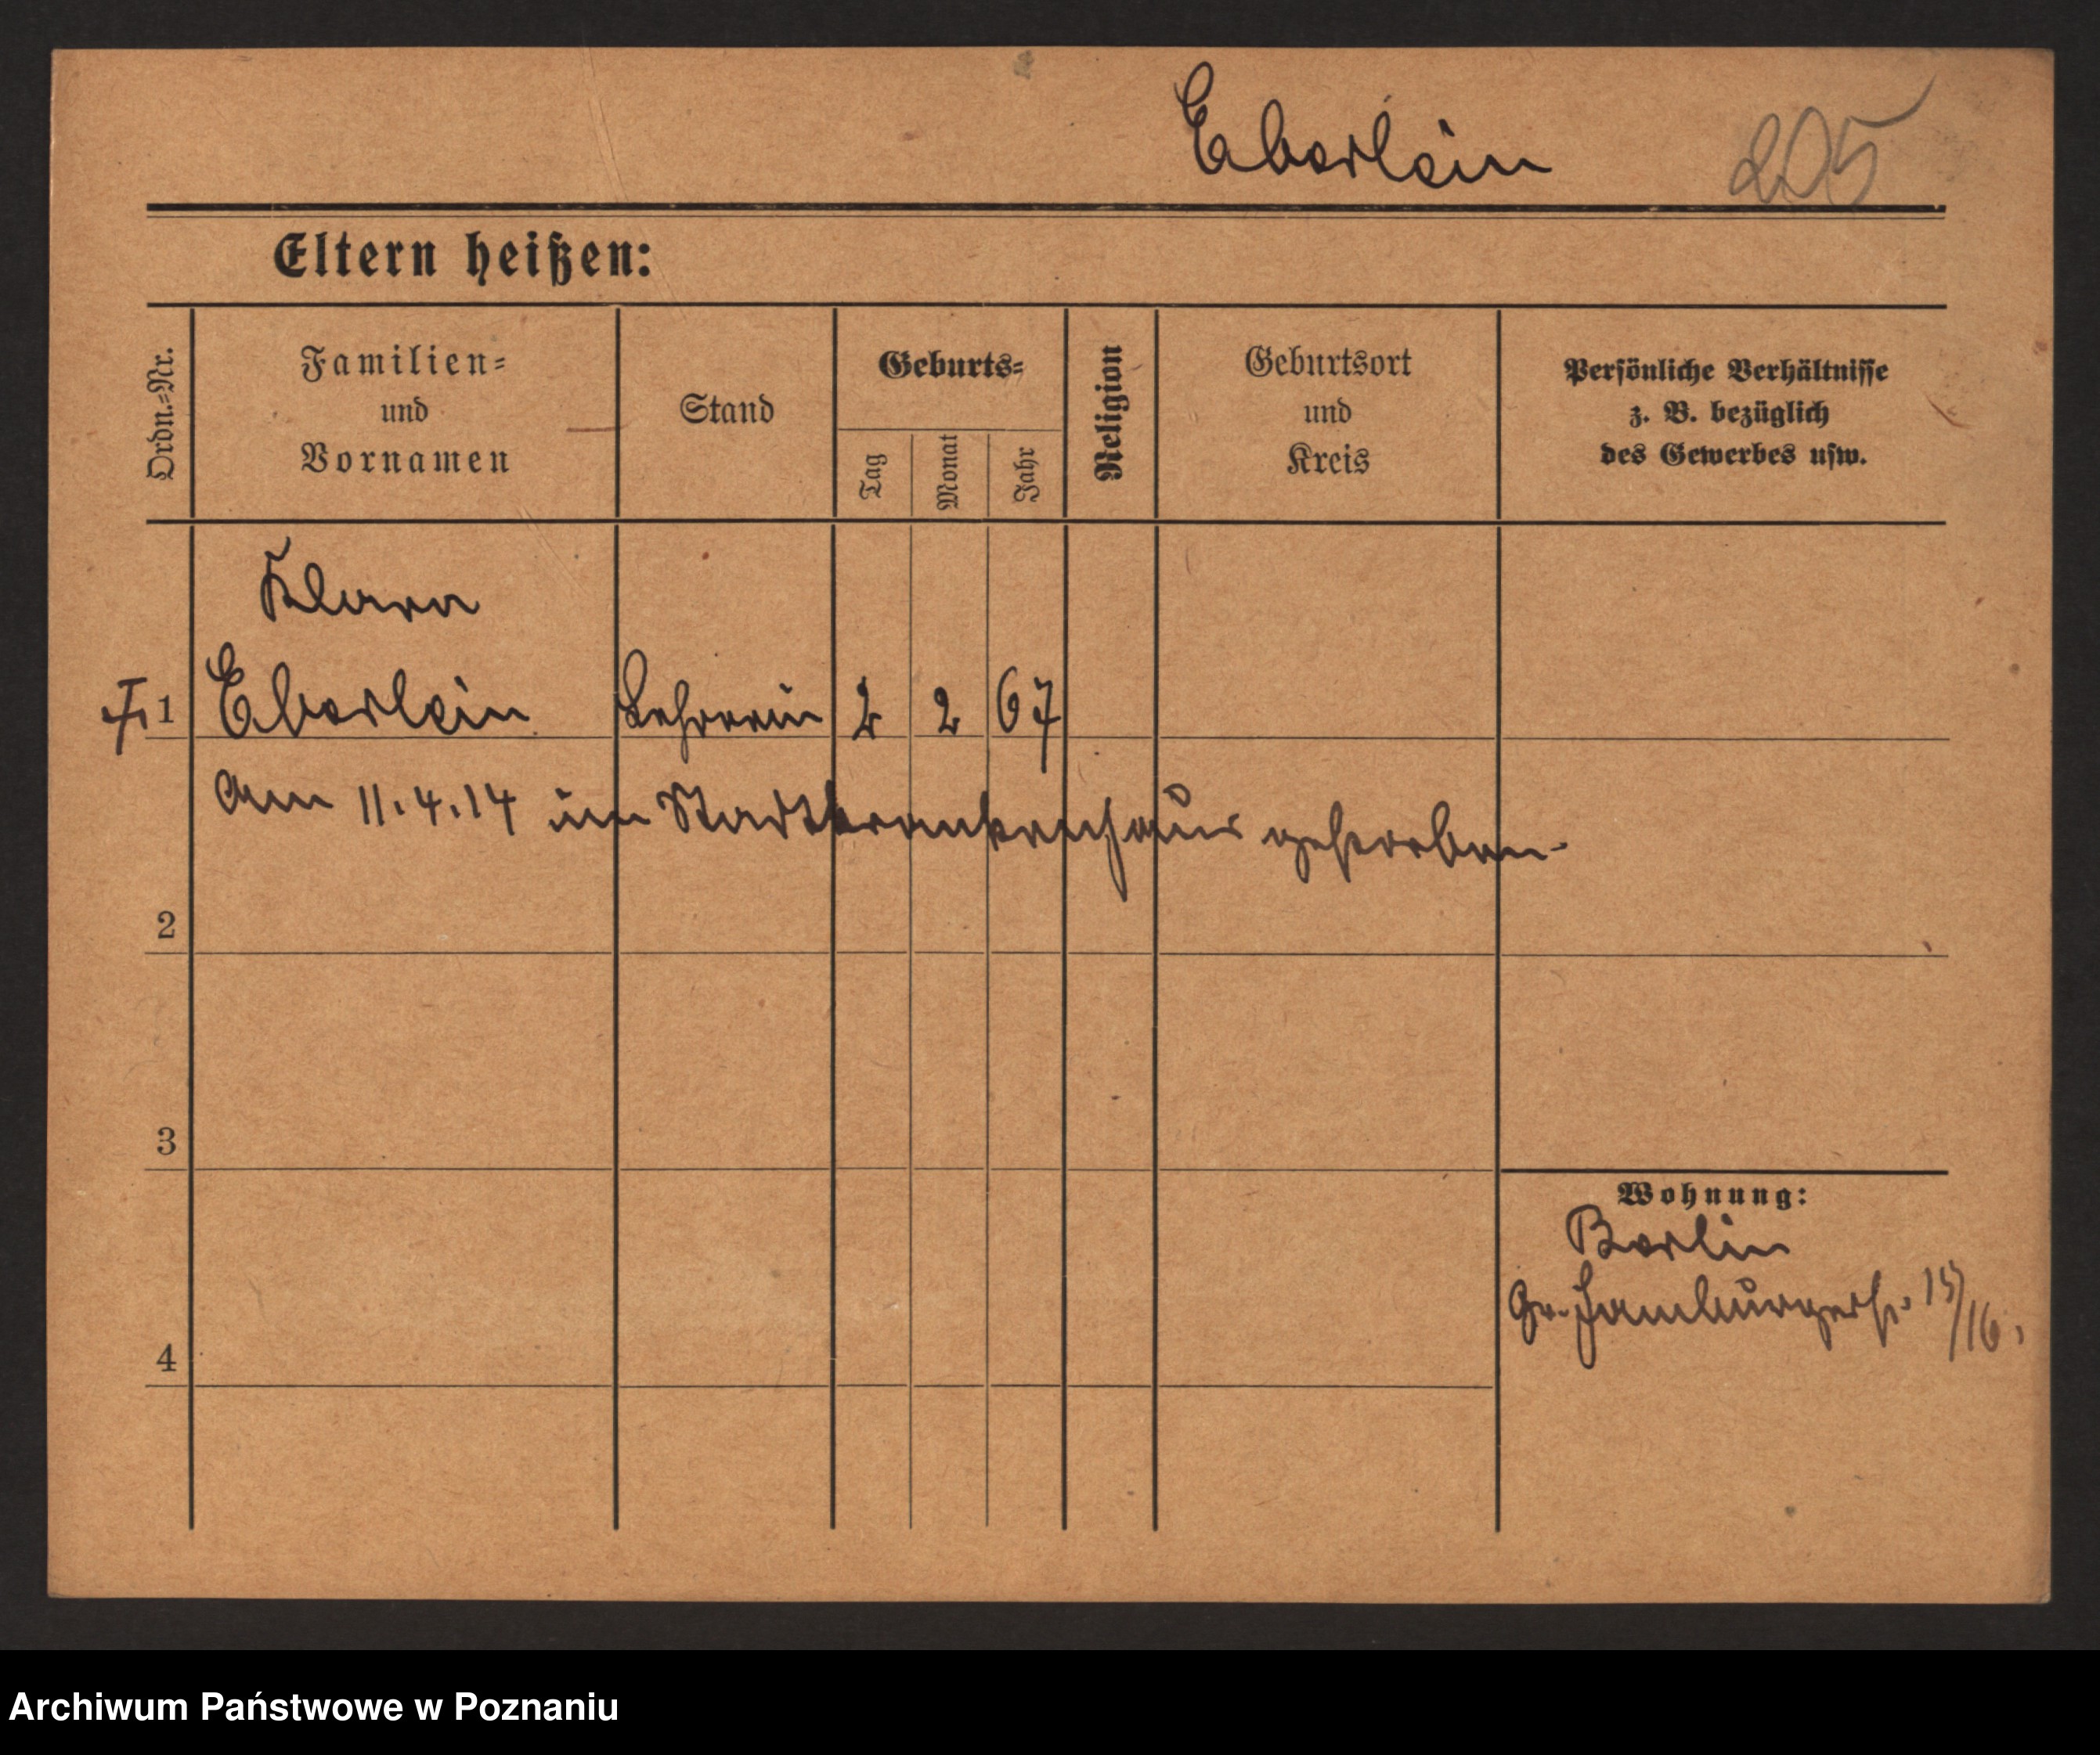 Eberlein 205
Eltern heißen:
Ordn.=Nr.
Familien=
und
Vornamen
Stand
Geburts=
Tag
Monat
Jahr
Religion
Geburtsort
und
Kreis
Persönliche Verhältnisse
z. B. bezüglich
des Gewerbes usw.
Klara
1 Eberlein Lehrerin 2 2 67
Am 11.4.14 im Stadtkrankenhaus gestorben.
2
3
4
Wohnung:
Berlin
Gr. Hamburgerstr. 15/16.
Archiwum Państwowe w Poznaniu